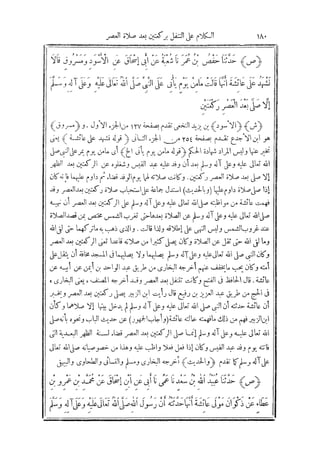 ١٨٠ الكلام على التنفل بركعتين بعد صلاة العصر
(ص) حَدَّثَنَا حَفْصُ بْنُ عُمَرَ نَا شُعْبَةُ عَنْ أَبِي إِسْحَاقَ عَنِ الْأَسْوَدِ وَمَسْرُوقٍ قَالَا
نَشْهَدُ عَلَى عَائِشَةَ أَنَّهَا قَالَتْ مَامِنْ يَوْمٍ يَأْتِي عَلَى النَّبِيِّ صَلَّى اللهُ تَعَالَى عَلَيْهِ وَعَلَى آلِهِ وَسَلَّمَ
إِلَّا صَلَّى بَعْدَ الْعَصْرِ رَكْعَتَيْنِ
(ش) (الأسود) بن يزيد النخعى تقدم بصفحة ١٢٧ من الجزء الأول . و (مسروق)
هو ابن الأجدع تقدم بصفحة ٢٥٤ من الجزء الثانى (قوله نشهد على عائشة) يعنى
نخبر عنها وليس المراد شهادة الحكم (قوله مامن يوم يأتى الخ) أى مامن يوم يمر على النبى صلى
الله تعالى عليه وعلى آله وسلم بعد أن وفد عليه عبد القيس وشغلوه عن الركعتين بعد الظهر
إلا صلى بعد صلاة العصر ركعتين . وكانت صلاته لها يوم الوفد قضاء ثم داوم عليها فإنه كان
إذا صلى صلاة داوم عليها (وبالحديث) استدل جماعة على استحباب صلاة ركعتين بعد العصر وقد
فهمت عائشة من مواظبته صلى الله تعالى عليه وعلى آله وسلم على الركعتين بعد العصر أن نهيه
صلى الله تعالى عليه وعلى آله وسلم عن الصلاة بعدها حتى تغرب الشمس مختص بمن قصد الصلاة
عند غروب الشمس وليس النهى على إطلاقه ولذا قالت . والذى ذهب به ماتركهما حتى لقى الله
وما لقى الله حتى ثقل عن الصلاة وكان يصلى كثيرا من صلاته قاعدا تعنى الركعتين بعد العصر
وكان النبى صلى الله تعالى عليه وعلى آله وسلم يصليهما ولا يصليهما فى المسجد مخافة أن يثقل على
أمته وكان يحب مايخفف عنهم أخرجه البخارى من طريق عبد الواحد بن أيمن عن أبيه عن
عائشة . قال الحافظ فى الفتح وكانت تتنفل بعد العصر وقد أخرجه المصنف . يعنى البخارى .
فى الحج من طريق عبد العزيز بن رفيع قال رأيت ابن الزبير يصلى ركعتين بعد العصر ويخبر
أن عائشة حدثته أن النبى صلى الله تعالى عليه وعلى آله وسلم لم يدخل بيتها إلا صلاهما وكأن
ابن الزبير فهم من ذلك مافهمته خالته عائشة (وأجاب الجمهور) عن حديث الباب ونحوه بأنه صلى
الله تعالى عليه وعلى آله وسلم إنما صلى الركعتين بعد العصر قضاء لسنة الظهر البعدية التى
فاتته يوم وفد عبد القيس وكان إذا فعل فعلا واظب عليه وهذا من خصوصياته صلى الله تعالى
عليه وعلى آله وسلم كما تقدم (والحديث) أخرجه البخارى ومسلم والنسائى والطحاوى والبيهقى
(ص) حَدَّثَنَا عُبَيْدُ اللهِ بْنُ سَعْدٍ نَا عَمِّي نَا أَبِي عَنِ ابْنِ إِسْحَاقَ عَنْ مُحَمَّدِ بْنِ عَمْرِو بْنِ
عَطَاءٍ عَنْ ذَكْوَانَ مَوْلَى عَائِشَةَ أَنَّهَا حَدَّثَتْهُ أَنَّ رَسُولَ اللهِ صَلَّى اللهُ تَعَالَى عَلَيْهِ وَعَلَى آلِهِ وَسَلَّمَ